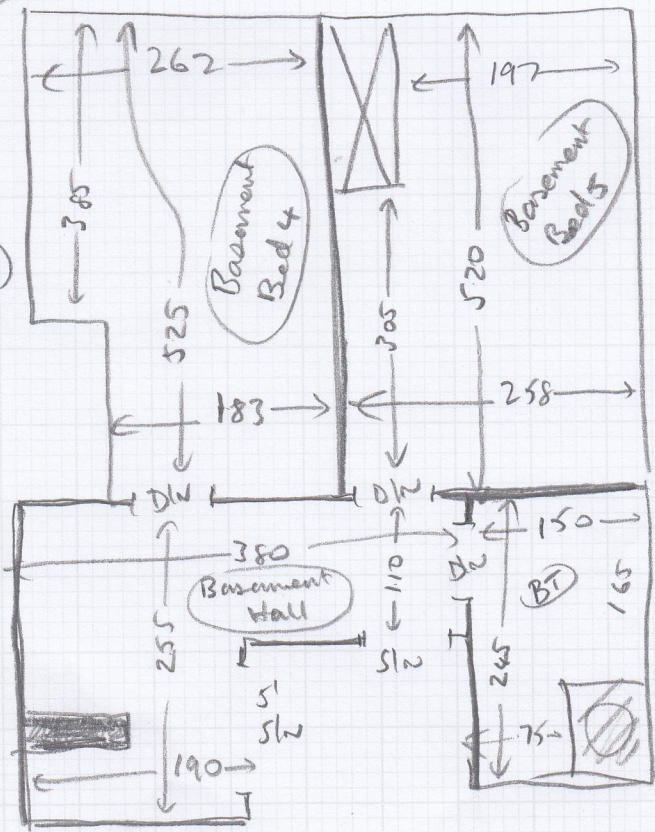 262
197
385
Basement
Bed 4
Basement
Bed 5
525
305
520
183
258
D/N
D/N
380
110
D/N
150
Basement
Hall
BT
165
255
245
S/N
5'
S/N
75
190